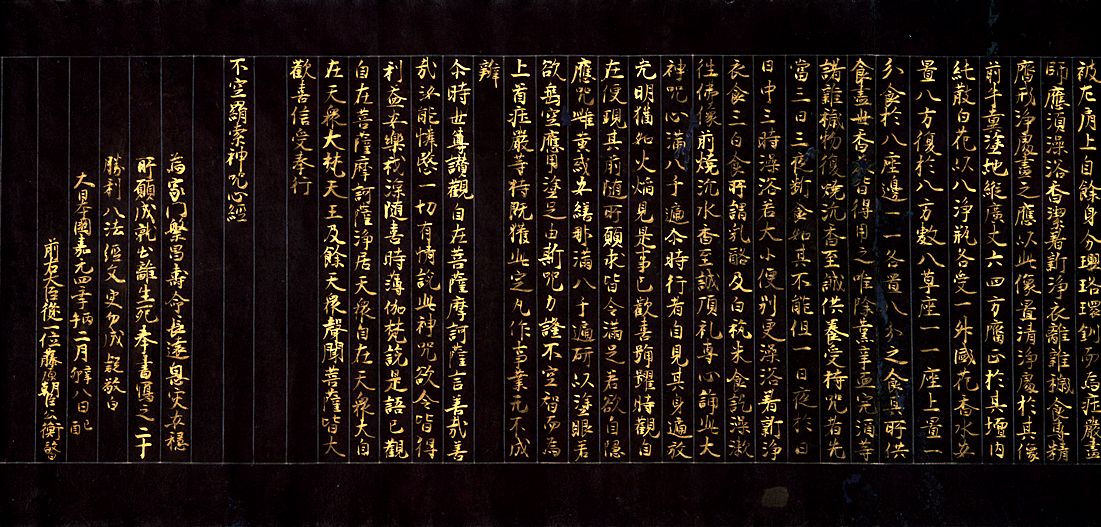 被左肩上自餘身分瓔珞環釧而為莊嚴畫
師應須澡浴香潔著新淨衣離雜穢食專精
齋戒淨處畫之應以此像置清淨處於其像
前牛糞塗地縱廣丈六四方齊正於其壇內
純散白花以八淨瓶各受一㪷國花香水五
置八方復於八方敷八草座一一座上置一
分食於八座邊一一各置八分之食具所供
食盡世香美皆得用之唯除熏辛血完酒等
諸雜穢物復燒沉香至誠供養受持咒者先
當三日三夜斷食如其不能但一日夜於日
日中三時澡浴若大小便別更澡浴著新淨
衣食三白食所謂乳酪及白粳米食訖澡漱
往佛像前燒沉水香至誠頂礼專心誦此大
神咒心滿八千遍尒時行者自見其身遍放
光明猶如火焰見是事已歡喜踊躍時觀自
在便現其前隨所願求皆令滿足若欲自隱
應咒雌黃或安繕那滿八千遍研以塗眼若
欲乘空應用塗足由斯咒力證不空智而為
上首莊嚴等持既獲此定凡作事業无不成
辦
尒時世尊讚觀自在菩薩摩訶薩言善哉善
哉汝能憐愍一切有情說此神咒欲令皆得
利益安樂我深随喜時薄伽梵說是語已觀
自在菩薩摩訶薩淨居天衆自在天衆大自
在天衆大梵天王及餘天衆聲聞菩薩皆大
歡喜信受奉行
不空羂索神咒心經
為家門繁昌壽命長遠息灾安穩
所願成就出離生死奉書寫之二十
勝利八法經文更勿成疑敬白
大日本國嘉元四年丙午二月十八日己酉
前右大臣從一位藤原朝臣公衡啓